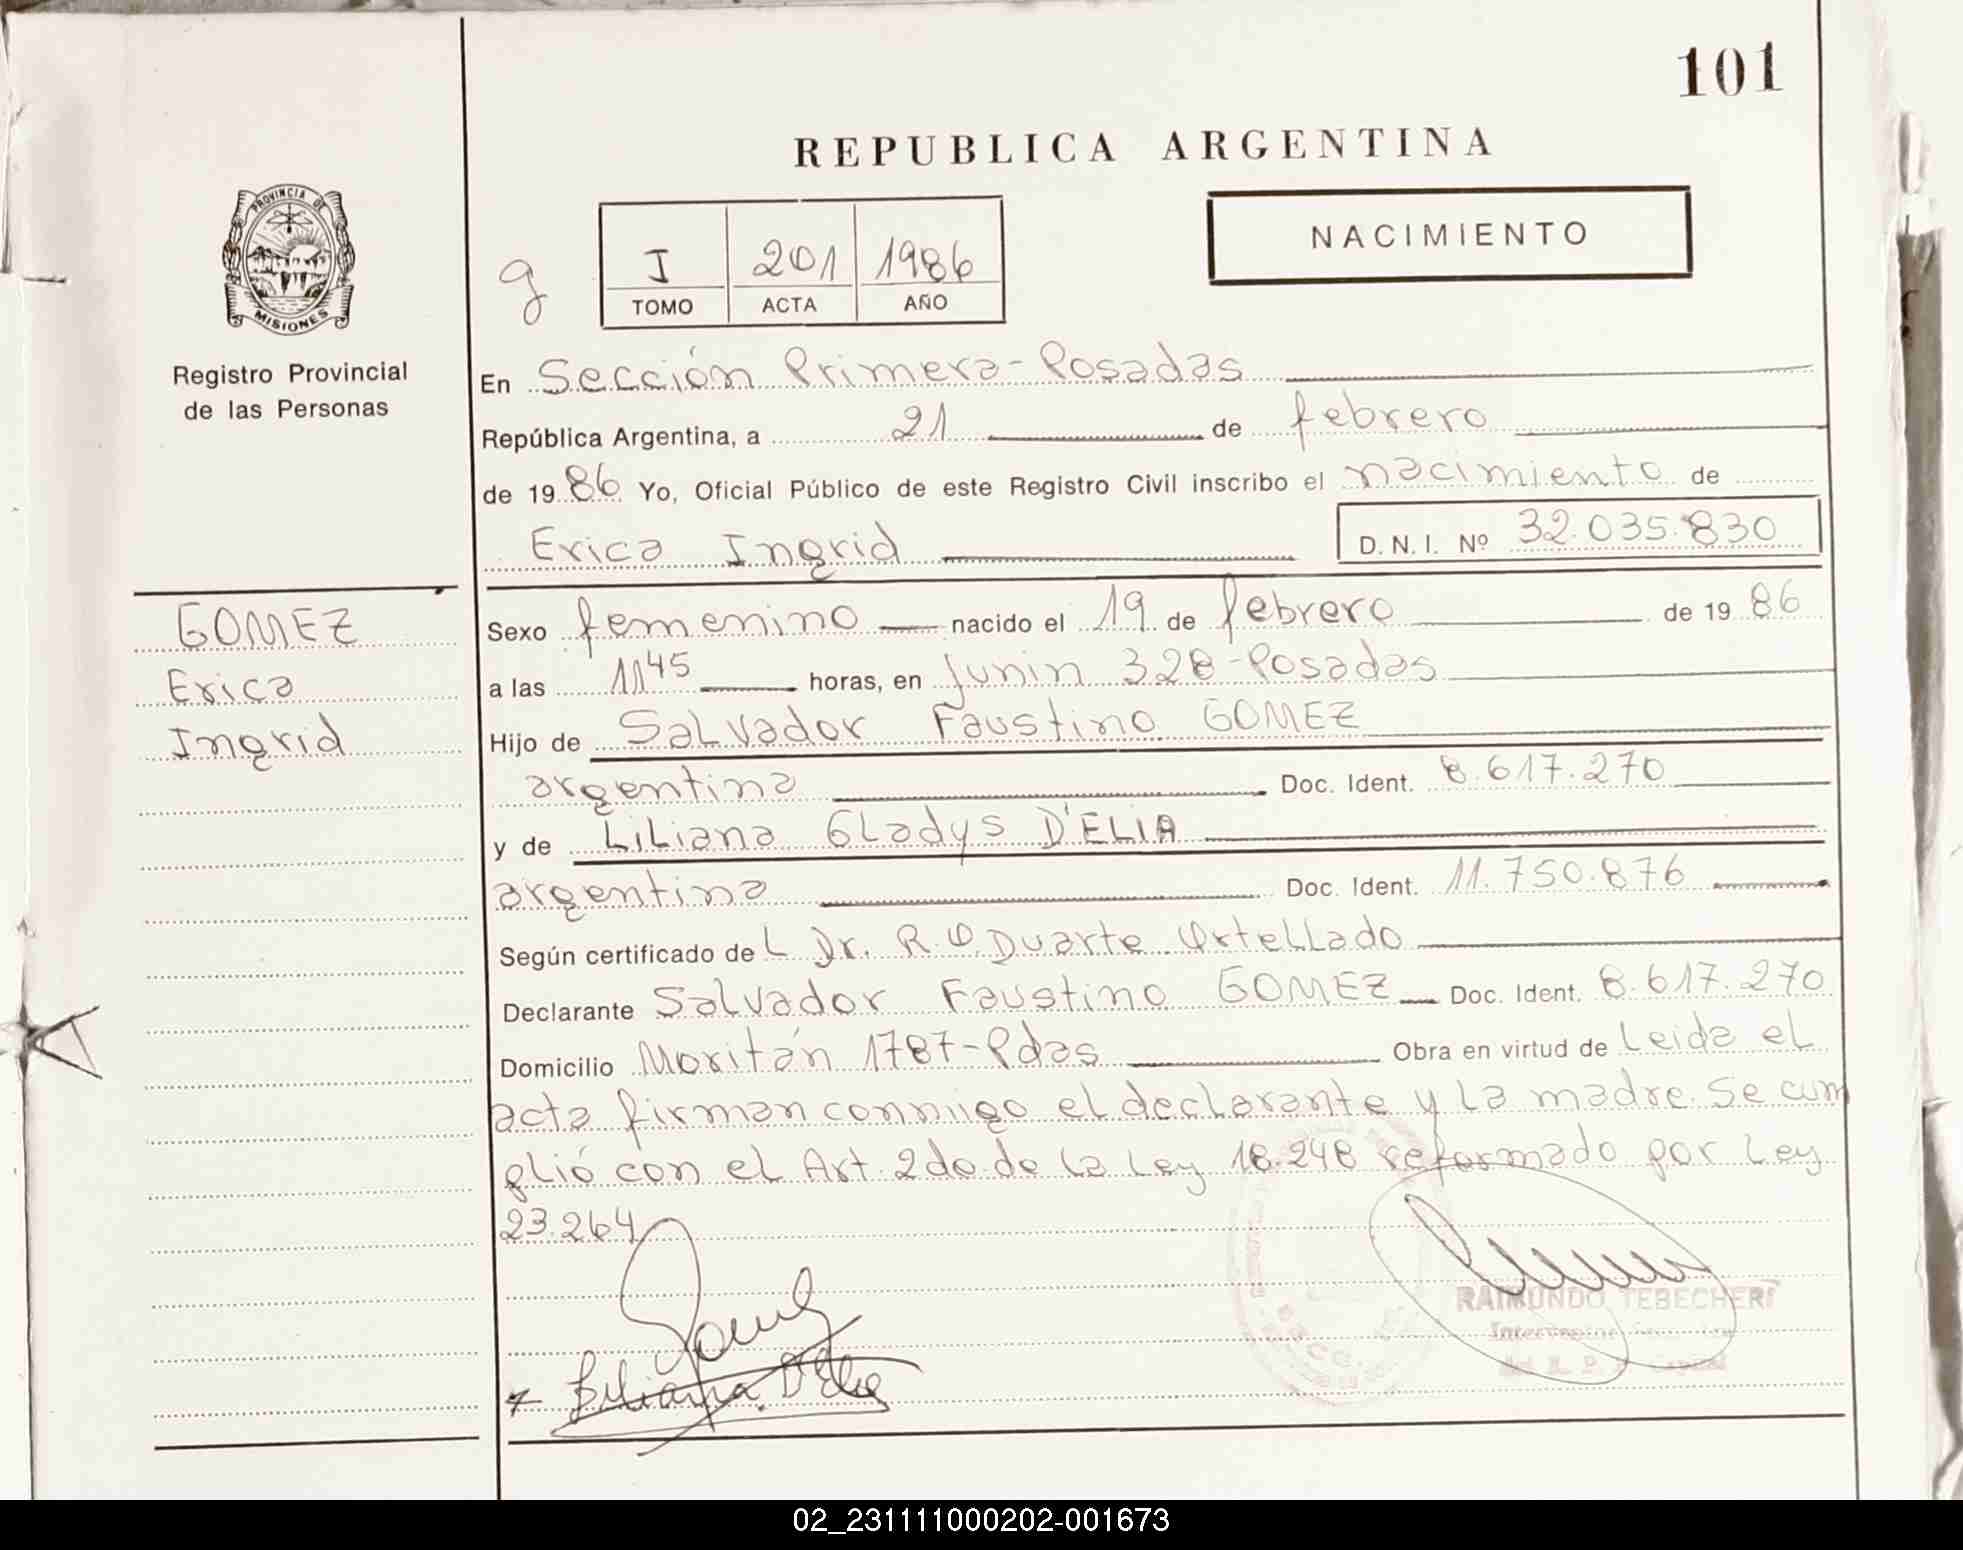 101
REPUBLICA ARGENTINA
PROVINCIA DE
MISIONES
Registro Provincial
de las Personas
g
I 201 1986
TOMO ACTA AÑO
NACIMIENTO
En Sección Primera-Posadas
República Argentina, a 21 de febrero
de 19 86 Yo, Oficial Público de este Registro Civil inscribo el nacimiento de
Erica Ingrid D. N. I. Nº 32.035.830
GOMEZ
Erica
Ingrid
Sexo femenino nacido el 19 de febrero de 19 86
a las 11 45 horas, en Junin 328-Posadas
Hijo de Salvador Faustino GOMEZ
argentina Doc. Ident. 8.617.270
y de Liliana Gladys D'ELIA
argentina Doc. Ident. 11.750.876
Según certificado de L Dr. R.O. Duarte Ortellado
Declarante Salvador Faustino GOMEZ Doc. Ident. 8.617.270
Domicilio Moritán 1787-Pdas Obra en virtud de Leida el
acta firman conmigo el declarante y la madre. Se cum
plió con el Art. 2do de la Ley 18.248 reformado por Ley
23.264
Liliana D'Elia
RAIMUNDO TEBECHERI
02_231111000202-001673